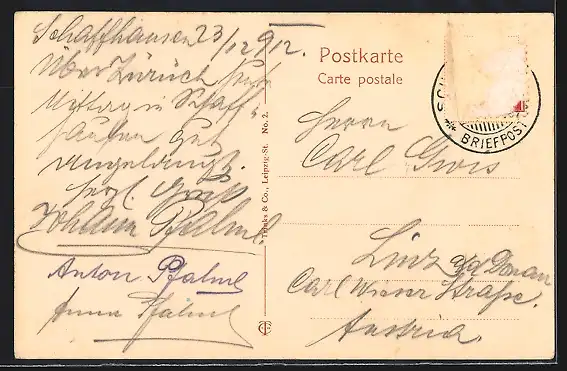 Schaffhausen 23/12 912.
Über Zürich
Mittag in Schaff-
hausen gut
angelangt.
herzl. Gruß
Johann Pfalml
Anton Pfalml
Anna Pfalml
Trinks & Co., Leipzig-St. No. 2.
Postkarte
Carte postale
SCH
BRIEFPOST
Herrn
Carl Greis
Linz a/d Donau
Carl Wieser Straße.
Austria.